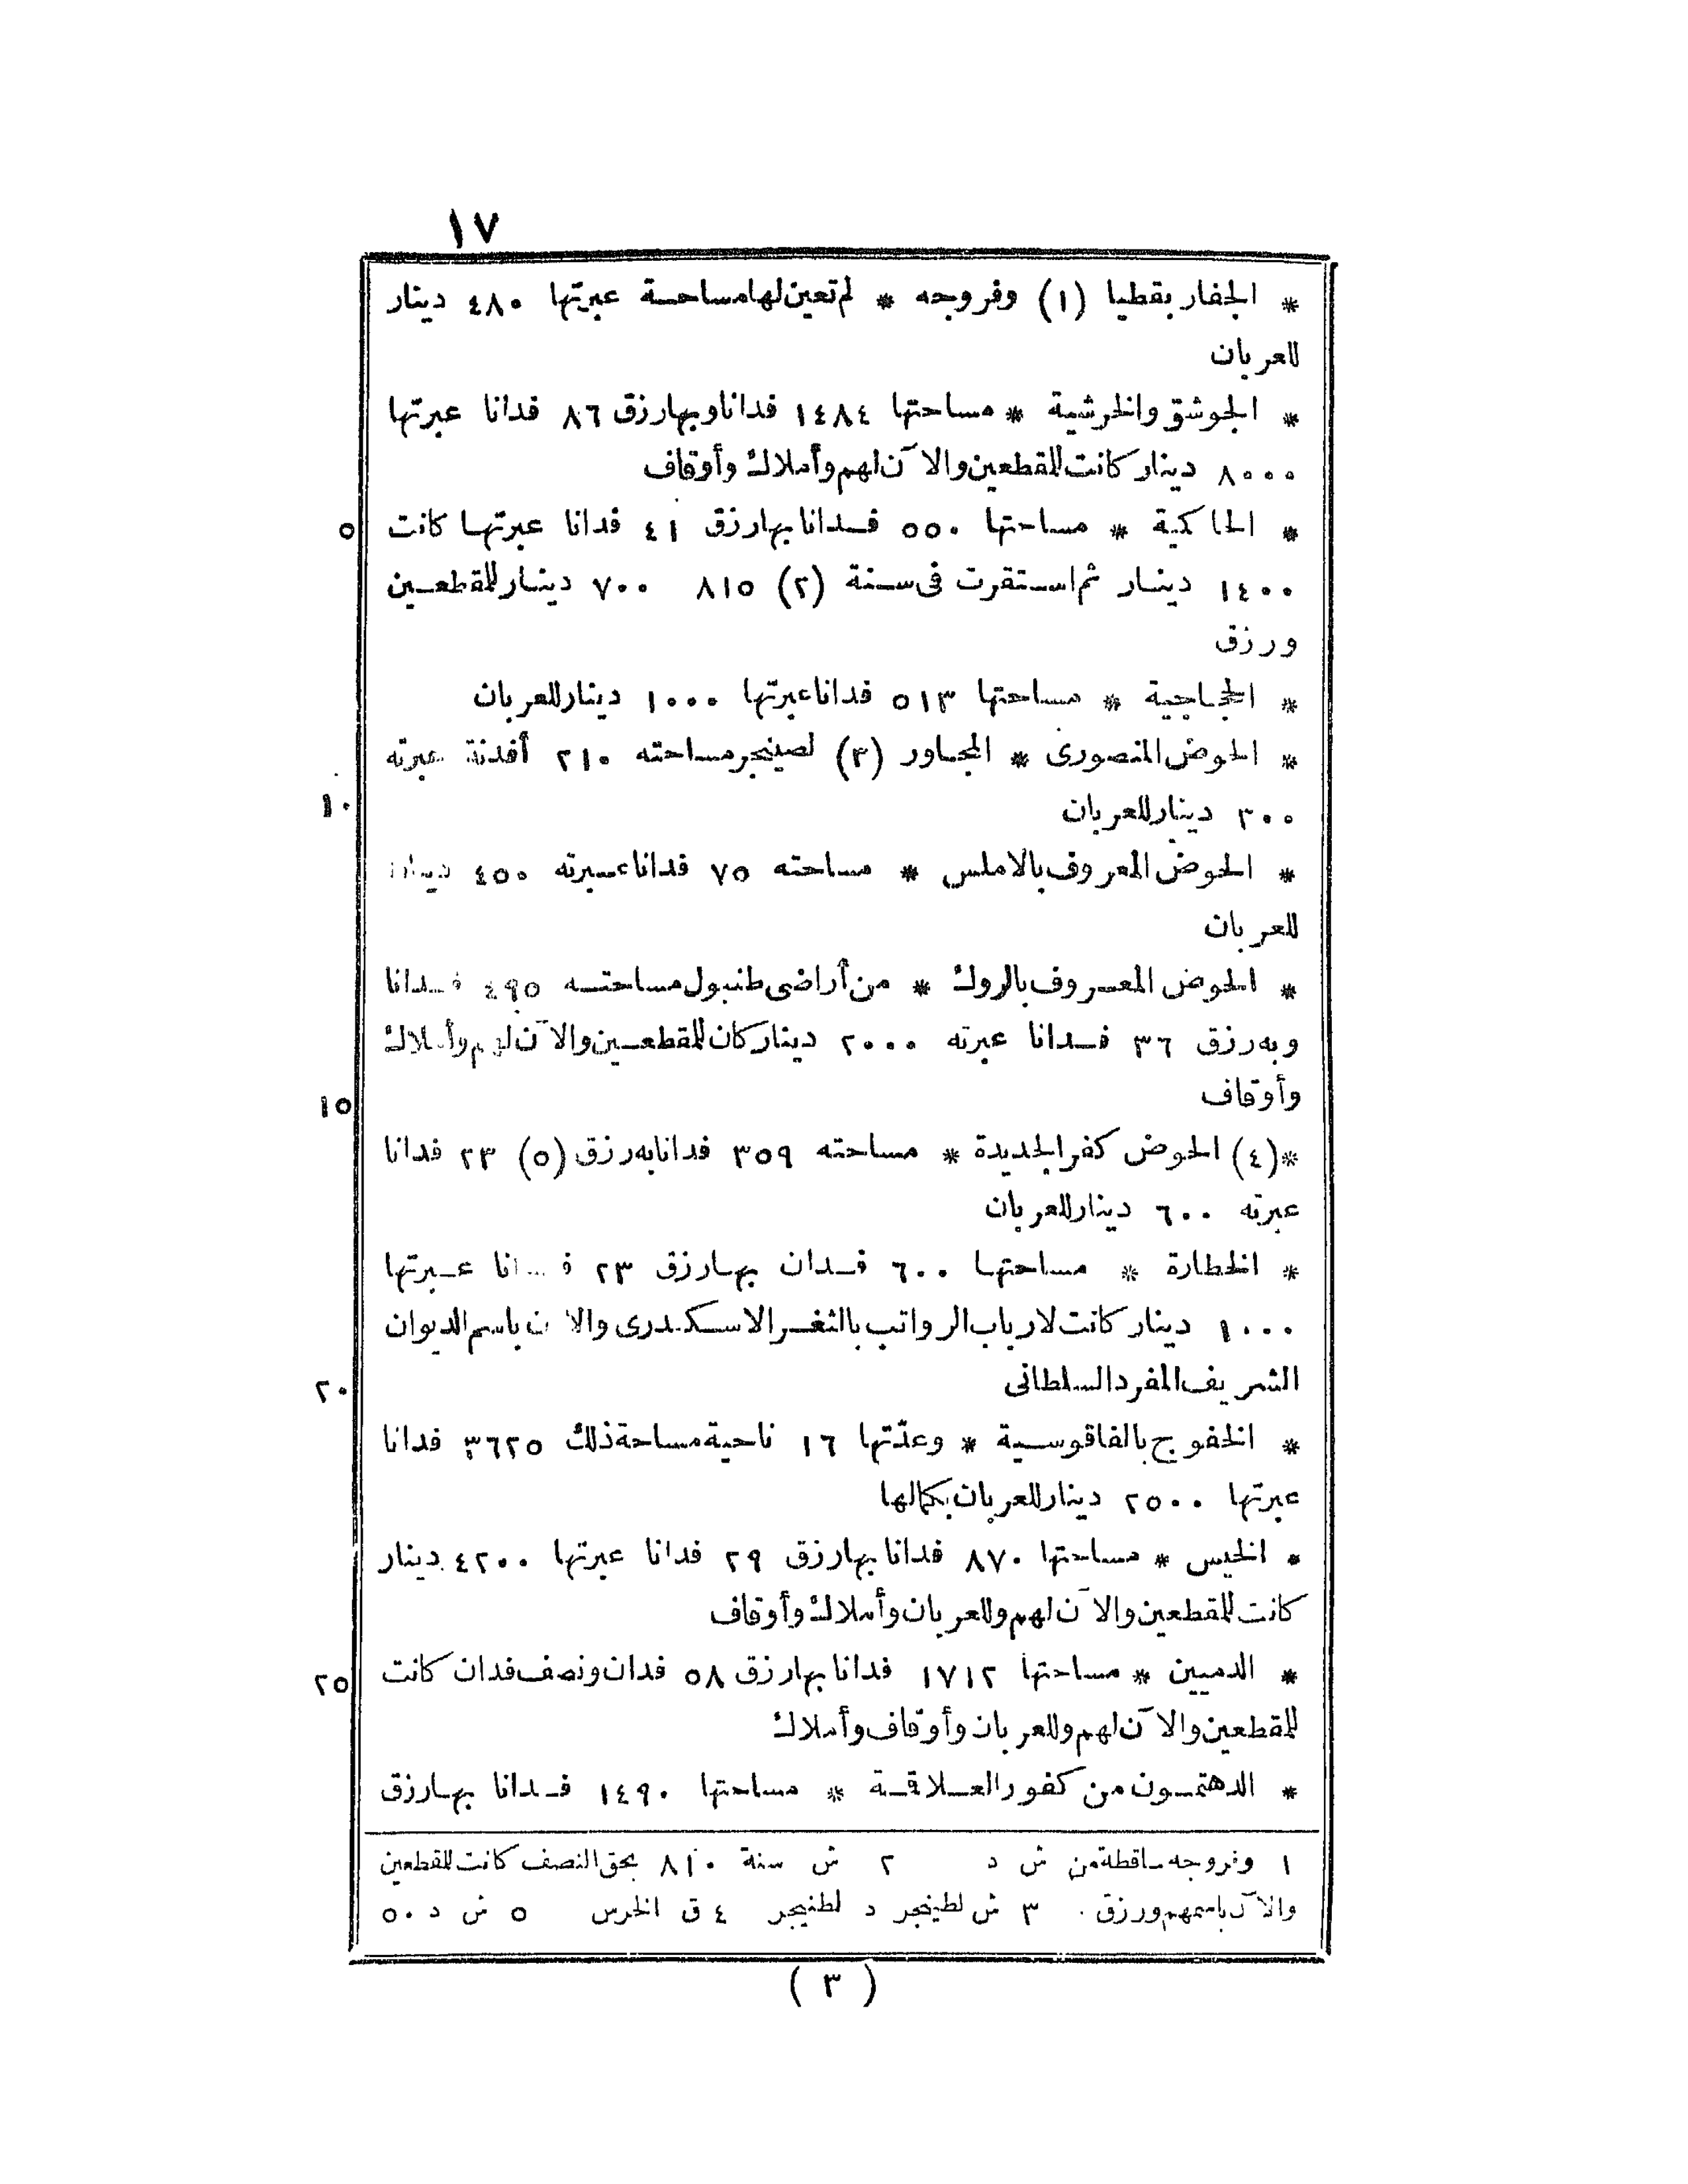 ١٧
* الجفار بقطيا (١) وفروجه * لم تعين لها مساحة عبرتها ٤٨٠ دينار
للعربان
* الجوشق والخرشية * مساحتها ١٤٨٤ فدانا وبها رزق ٨٦ فدانا عبرتها
٨٠٠٠ دينار كانت للمقطعين والآن لهم وأملاك وأوقاف
* الحاكمية * مساحتها ٥٥٠ فدانا بها رزق ٤١ فدانا عبرتها كانت
٥
١٤٠٠ دينار ثم استقرت فى سنة (٢) ٨١٥ ٧٠٠ دينار للمقطعين
ورزق
* الحجاجية * مساحتها ٥١٣ فدانا عبرتها ١٠٠٠ دينار للعربان
* الحوض المنصورى * المجاور (٣) لصينجر مساحته ٢١٠ أفدنة عبرته
٣٠٠ دينار للعربان
١٠
* الحوض المعروف بالاملس * مساحته ٧٥ فدانا عبرته ٤٥٠ دينارا
للعربان
* الحوض المعروف بالروك * من أراضى طنبول مساحته ٤٩٥ فدانا
وبه رزق ٣٦ فدانا عبرته ٢٠٠٠ دينار كان للمقطعين والآن لهم وأملاك
وأوقاف
١٥
*(٤) الحوض كفر الجديدة * مساحته ٣٥٩ فدانا به رزق (٥) ٢٣ فدانا
عبرته ٦٠٠ دينار للعربان
* الخطارة * مساحتها ٦٠٠ فدان بها رزق ٢٣ فدانا عبرتها
١٠٠٠ دينار كانت لارباب الرواتب بالثغر الاسكندرى والآن باسم الديوان
الشريف المفرد السلطانى
٢٠
* الخفوج بالفاقوسية * وعدّتها ١٦ ناحية مساحة ذلك ٣٦٢٥ فدانا
عبرتها ٢٥٠٠ دينار للعربان بكمالها
* الخيس * مساحتها ٨٧٠ فدانا بها رزق ٢٩ فدانا عبرتها ٤٢٠٠ دينار
كانت للمقطعين والآن لهم وللعربان وأملاك وأوقاف
* الدميين * مساحتها ١٧١٢ فدانا بها رزق ٥٨ فدان ونصف فدان كانت
٢٥
للمقطعين والآن لهم وللعربان وأوقاف وأملاك
* الدهتمون من كفور العلاقة * مساحتها ١٤٩٠ فدانا بها رزق
١ وفروجه ساقطة من ش د ٢ ش سنة ٨١٠ بحق النصف كانت للمقطعين
والآن باسمهم ورزق . ٣ ش لطينجر د لطنيجر ٤ ق الخرس ٥ ش د ٥٠
( ٣ )